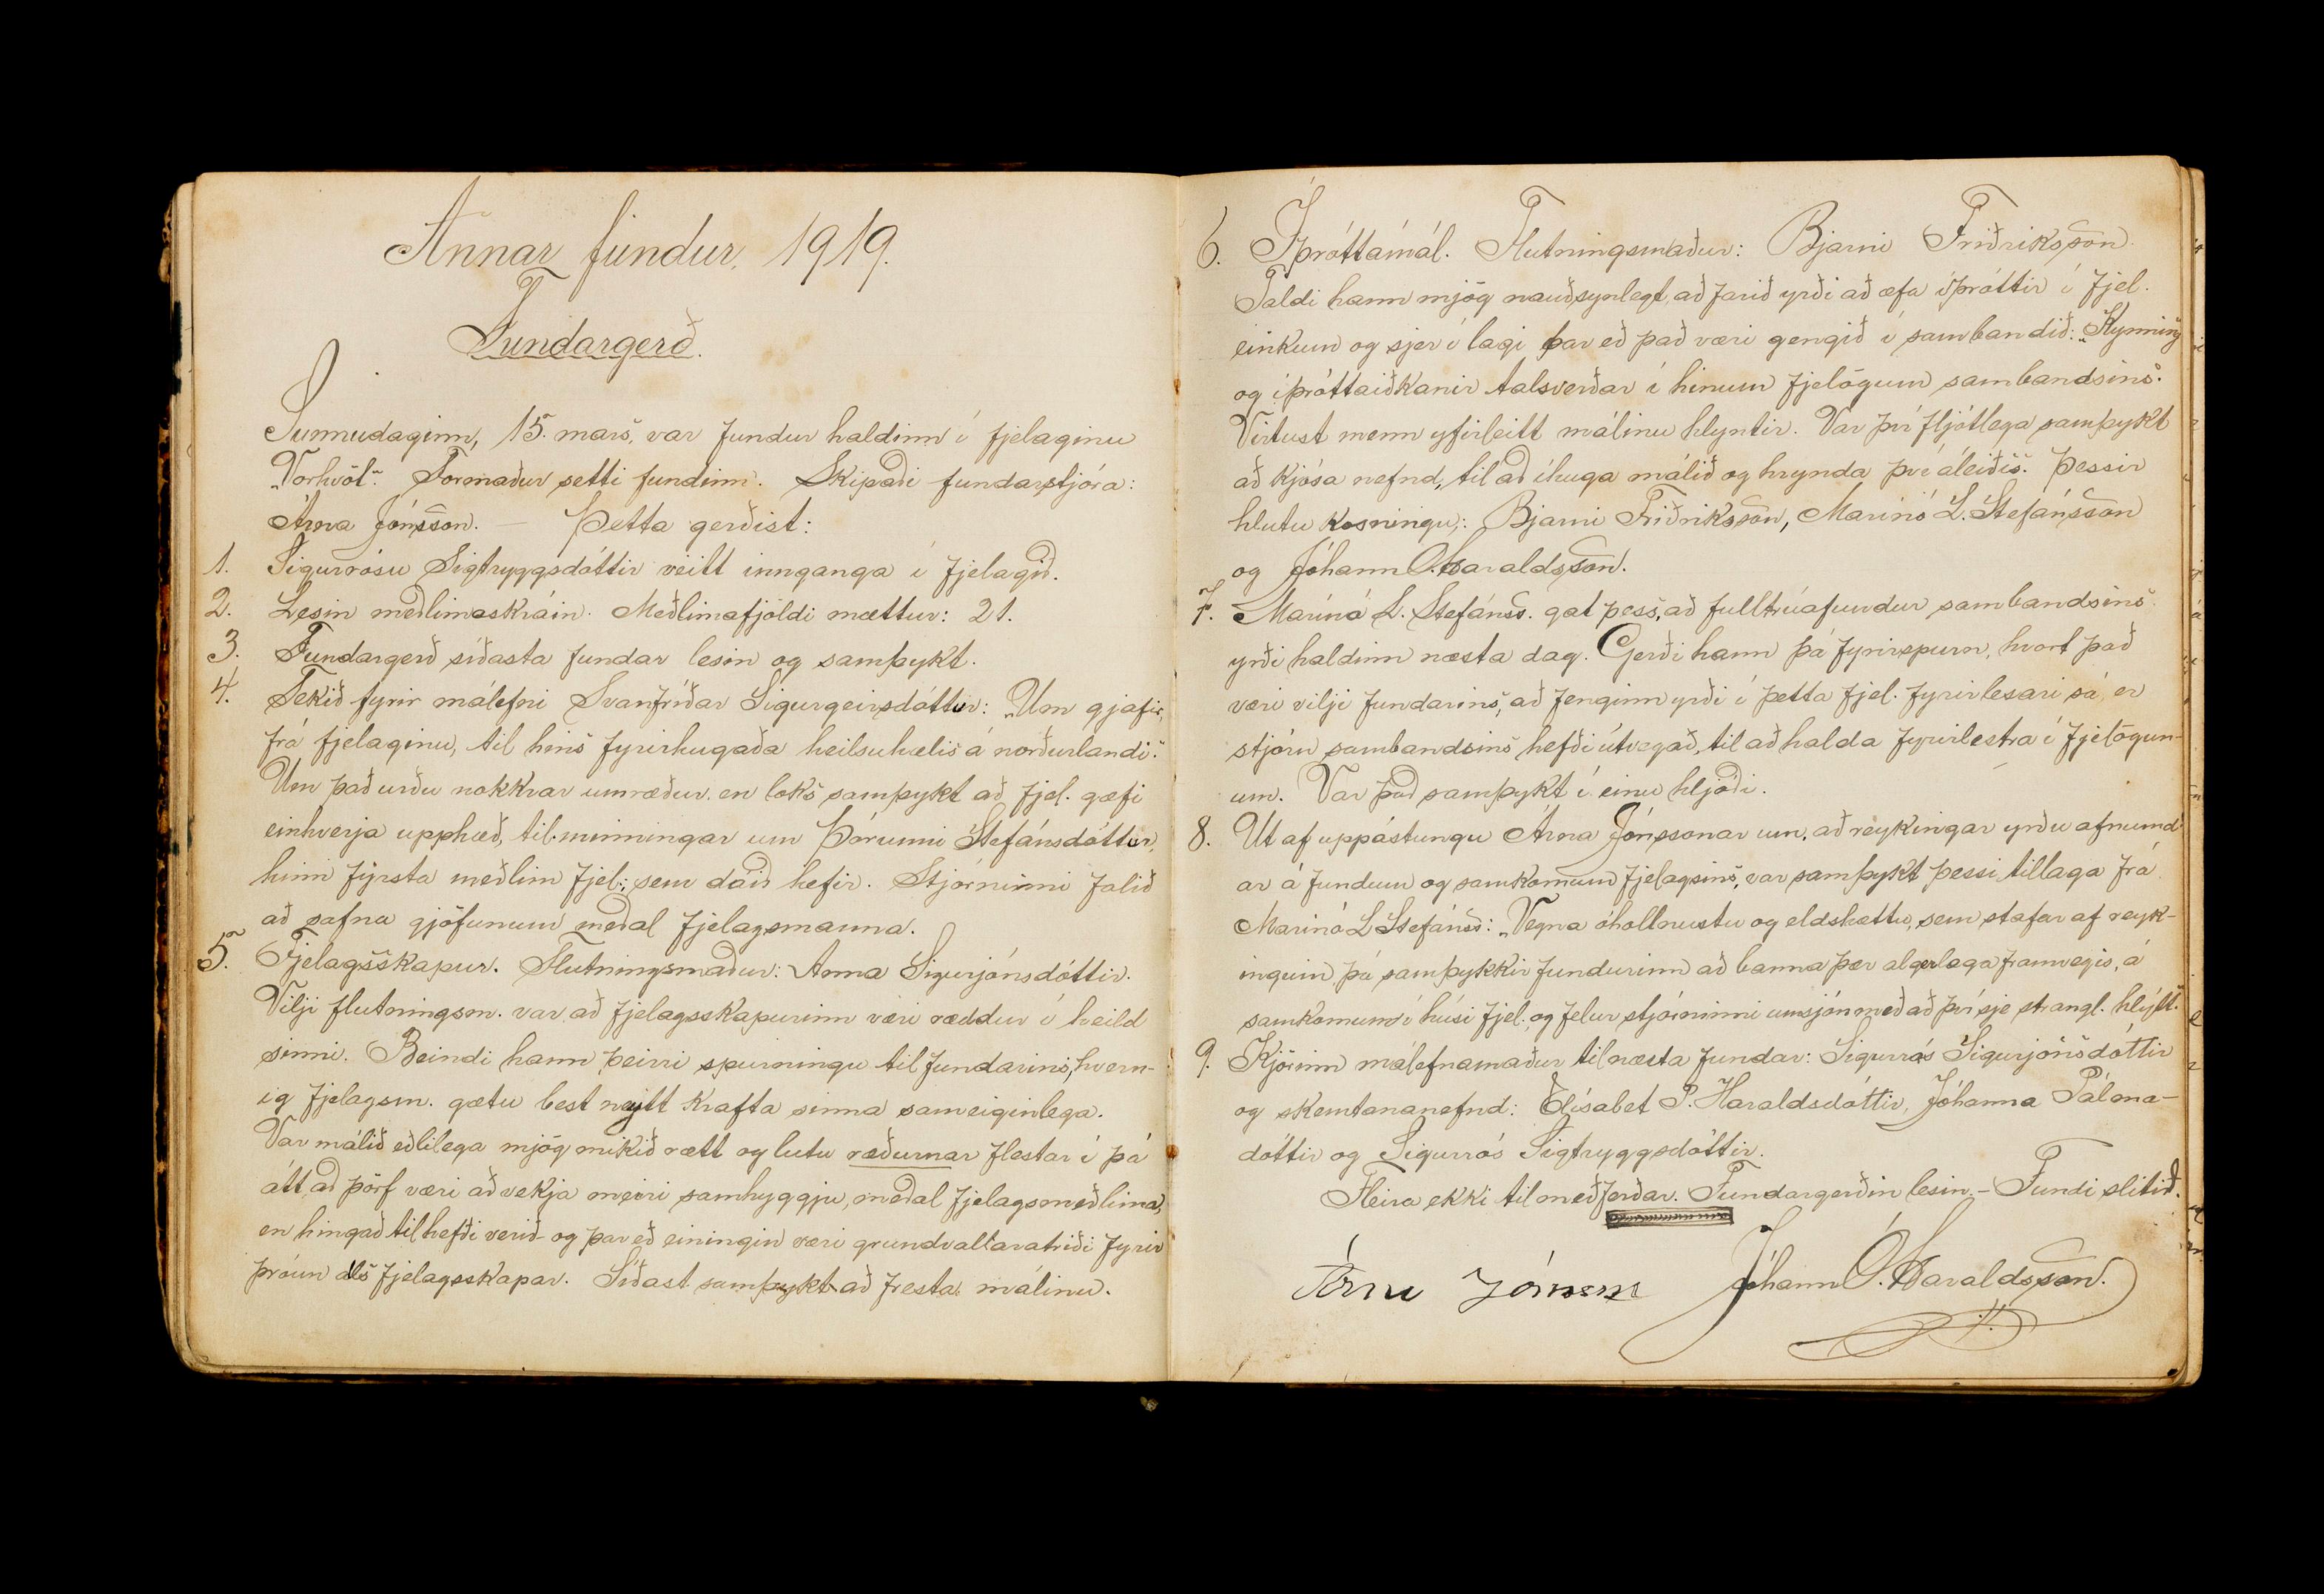 Annar fundur. 1919.
Fundargerð.
Sunnudaginn, 15. mars, var fundur haldinn í fjelaginu
„Vorhvöt“. Formaður setti fundinn. Skipaði fundarstjóra:
Árna Jónsson. — Þetta gerðist:
1. Sigurrósu Sigtryggsdóttir veitt innganga í fjelagið.
2. Lesin meðlimaskráin. Meðlimafjöldi mættur: 21.
3. Fundargerð síðasta fundar lesin og samþykt.
4. Tekið fyrir málefni Svanfríðar Sigurgeirsdóttur: „Um gjafir,
frá fjelaginu, til hins fyrirhugaða heilsuhælis á norðurlandi“.
Um það urðu nokkrar umræður, en loks samþykt að fjel. gæfi
einhverja upphæð, til minningar um Þórunni Stefánsdóttur,
hinn fyrsta meðlim fjel., sem dáið hefir. Stjórninni falið
að safna gjöfunum meðal fjelagsmanna.
5. Fjelagsskapur. Flutningsmaður: Anna Sigurjónsdóttir.
Vilji flutningsm. var að fjelagsskapurinn væri ræddur í heild
sinni. Beindi hann þeirri spurningu til fundarins, hvern-
ig fjelagsm. gætu best neytt krafta sinna sameiginlega.
Var málið eðlilega mjög mikið rætt og lutu ræðurnar flestar í þá
átt, að þörf væri að vekja meiri samhyggju, meðal fjelagsmeðlima,
en hingað til hefði verið - og þar eð einingin væri grundvallaratriði fyrir
þróun alls fjelagsskapar. Síðast samþykt að fresta málinu.
6. Íþróttamál. Flutningsmaður: Bjarni Friðriksson.
Taldi hann mjög nauðsynlegt, að farið yrði að æfa íþróttir í fjel.
einkum og sjer í lagi þar eð það væri gengið í sambandið: „Kynning
og íþróttaiðkanir talsverðar í hinum fjelögum sambandsins“.
Virtust menn yfirleitt málinu hlyntir. Var því fljótlega samþykt
að kjósa nefnd, til að íhuga málið og hrynda því áleiðis. Þessir
hlutu kosningu: Bjarni Friðriksson, Marinó L. Stefánsson
og Jóhann Ó. Haraldsson.
7. Marinó L. Stefánss. gat þess, að fulltrúafundur sambandsins
yrði haldinn næsta dag. Gerði hann þá fyrirspurn, hvort það
væri vilji fundarins, að fenginn yrði í þetta fjel. fyrirlesari sá, er
stjórn sambandsins hefði útvegað, til að halda fyrirlestra í fjelögun-
um. Var það samþykt í einu hljóði.
8. Út af uppástungu Árna Jónssonar um, að reykingar yrðu afnumd-
ar á fundum og samkomum fjelagsins, var samþykt þessi tillaga frá
Marinó L Stefánss: „Vegna óhollnustu og eldshættu, sem stafar af reyk-
ingum, þá samþykkir fundurinn að banna þær algerlega framvegis, á
samkomum í húsi fjel. og felur stjórninni umsjón með að því sje strangl. hlýtt.“
9. Kjörinn málefnamaður til næsta fundar: Sigurrós Sigurjónsdóttir
og skemtananefnd: Elísabet P. Haraldsdóttir, Jóhanna Pálma-
dóttir og Sigurrós Sigtryggsdóttir.
Fleira ekki til meðferðar. Fundargerðin lesin. - Fundi slitið.
Árni Jónsson Jóhann Ó. Haraldsson.